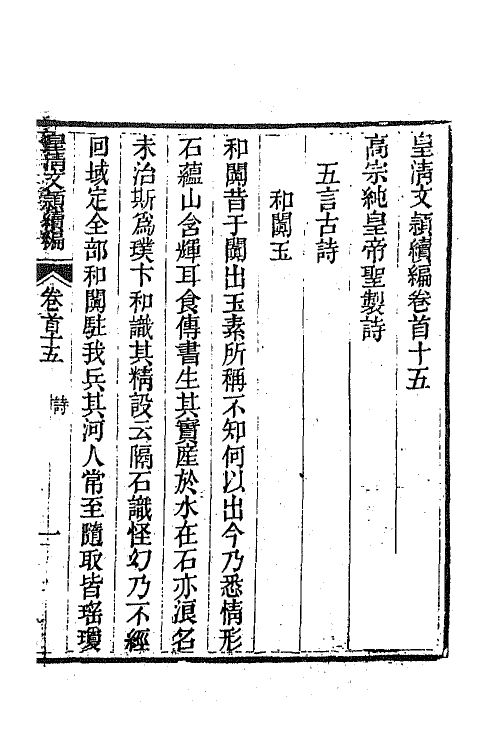 皇清文穎續編卷首十五
高宗純皇帝聖製詩
五言古詩
和闐玉
和闐昔于闐出玉素所稱不知何以出今乃悉情形
石蘊山含輝耳食傳書生其實産於水在石亦浪名
未治斯爲璞卞和識其精設云隔石識怪幻乃不經
回域定全部和闐駐我兵其河人常至隨取皆瑤瓊
皇清文穎續編
卷首十五
詩
一